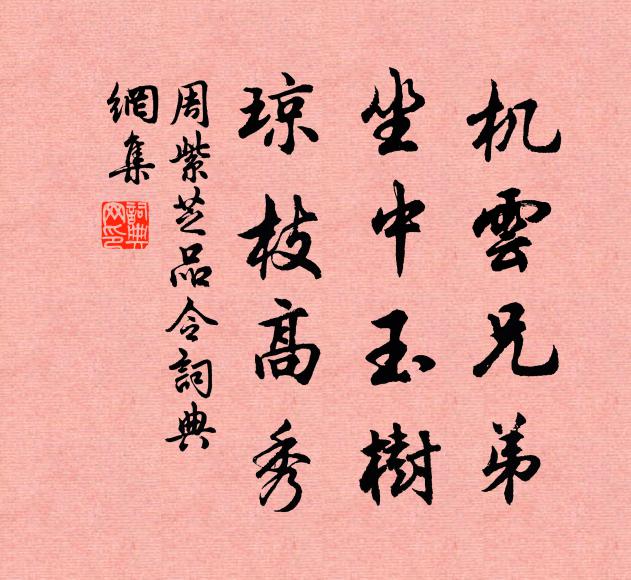 机雲兄弟
坐中玉樹
琼枝高秀
周紫芝品令詞典
網集
詞典網印